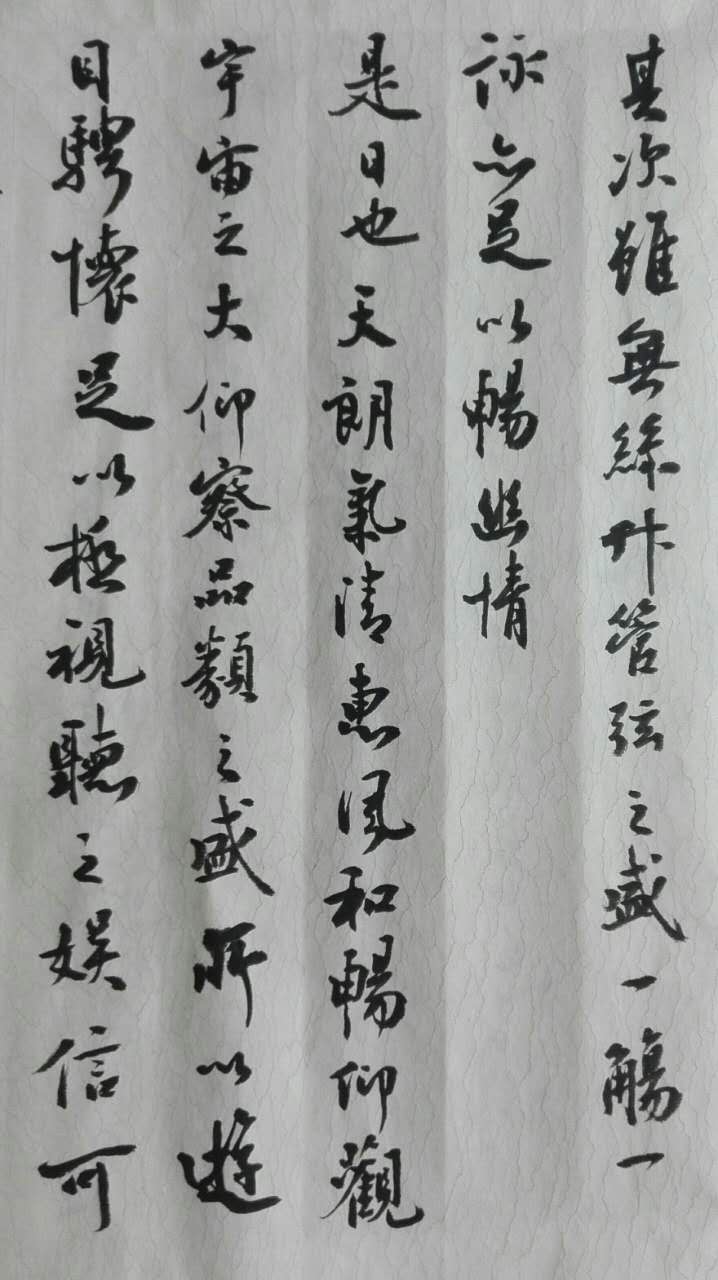 其次雖無絲竹管弦之盛一觴一
詠亦足以暢幽情
是日也天朗氣清惠風和暢仰觀
宇宙之大仰察品類之盛所以遊
目騁懷足以極視聽之娛信可